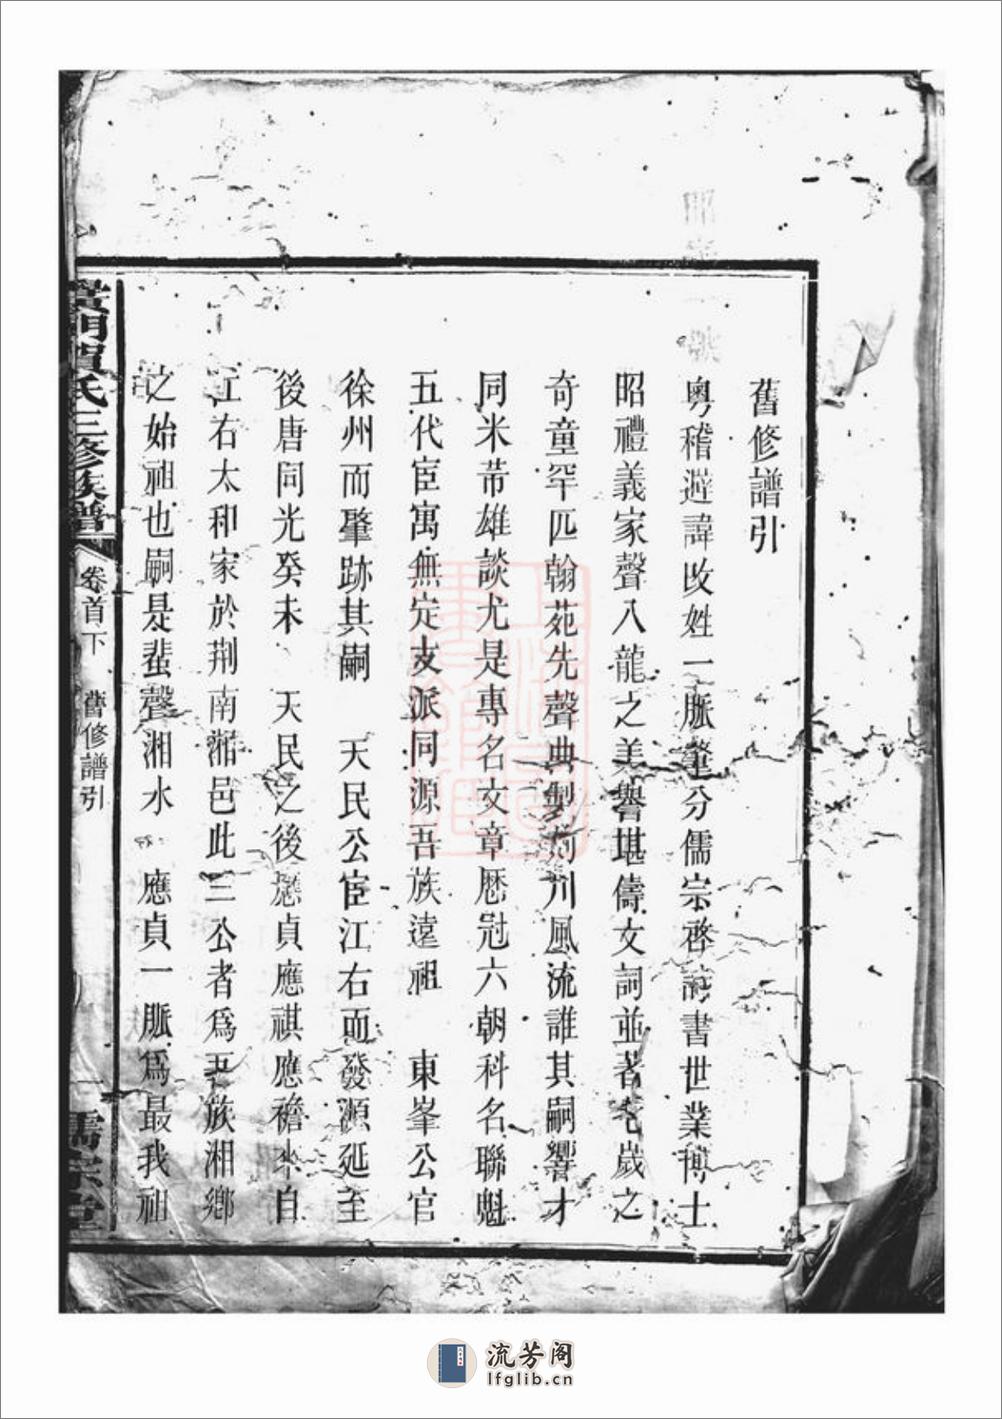 舊修譜引
粵稽避諱改姓一脈肇分儒宗啓詩書世業博士
昭禮義家聲八龍之美譽堪儔文詞並著七歲之
奇童罕匹翰苑先聲典製荊川風流誰其嗣響才
同米芾雄談尤是專名文章歷冠六朝科名聯魁
五代宦寓無定支派同源吾族遠祖 東峯公官
徐州而肇跡其嗣 天民公宦江右而發源延至
後唐同光癸未 天民之後應貞應祺應襜來自
江右太和家於荆南湘邑此三公者爲吾族湘鄉
之始祖也嗣是蜚聲湘水 應貞一脈爲最我祖
門賀氏三修族譜 卷首下 舊修譜引 一 儒宗堂
流芳阁
lfglib.cn